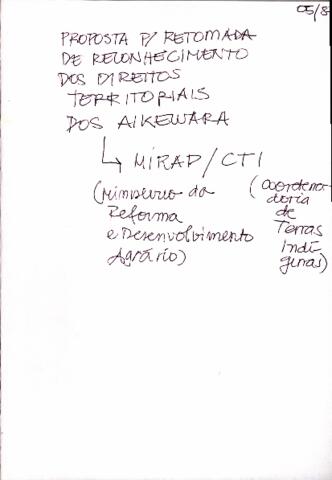 05/8
PROPOSTA P/ RETOMADA
DE RECONHECIMENTO
DOS DIREITOS
TERRITORIAIS
DOS AIKEWARA
↳ MIRAD/CTI
(Ministério da
Reforma
e Desenvolvimento
Agrário)
(Coordena-
doria
de
Terras
Indí-
genas)